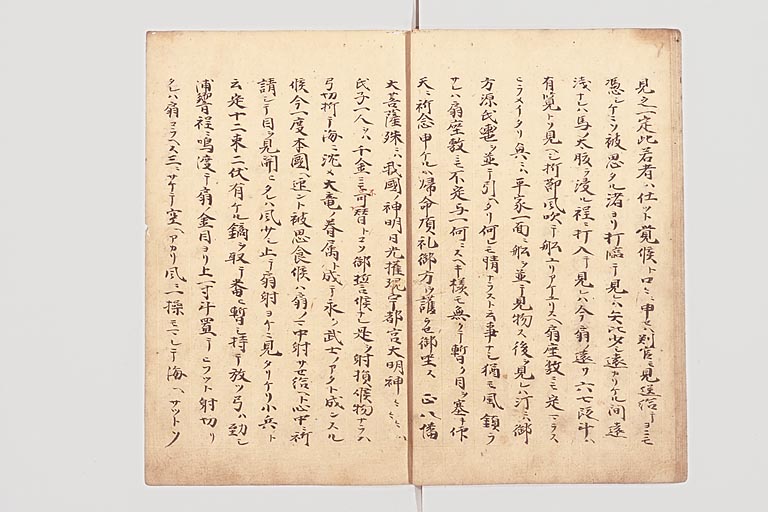 見之一定此若者ハ仕ツト覚候ト口々ニ申セハ判官モ見送給テヨニモ
憑シケニソ被思タル渚ヨリ打臨テ見レハ矢比少シ遠カリケル間遠
浅ナレハ馬ノ太腹ヲ浸ル程ニ打入テ見レハ今扇ノ遠サ六七段計ハ
有覧トソ見ヘシ折節風吹テ船ユリアケユリスヘ扇座敷ニモ定マラス
ヒラメイタリ奥ニハ平家一面ニ船ヲ並テ見物ス後ヲ見レハ汀ニハ御
方源氏轡ヲ並テ引ヘタリ何レモ情ナラスト云事ナシ猶モ風鎮ラ
サレハ扇座敷ニモ不定与一何ニスヘキ様モ無クテ暫ク目ヲ塞キ仰
天ニ祈念申ケルハ帰命頂礼御方ヲ護ラセ御坐ス 正八幡
大菩薩殊ニハ我國ノ神明日光権現宇都宮大明神
氏子一人ヲハ千金ニモ可替トコソ御誓候ナレ是ヲ射損候物ナラハ
弓切折テ海ニ沈メ大竜ノ眷属ト成テ永ク武士ノアタト成ンスル
候今一度本國ヘ返ント被思食候ハ扇ノ真中射サセ給ヘト心中ニ祈
請シテ目ヲ見開ニタレハ風少シ止テ扇射ヨケニ見タリケリ小兵ト
云定十二束二伏有ケル鏑ヲ取テ番ヒ暫シ持テ放ツ弓ハ勁シ
浦響程ニ鳴渡テ扇ノ金目ヨリ上一寸計置テヒフット射切リ
タレハ扇コラヘス三ニサケテ空ヘアカリ風ニ一操モマレテ海ヘサット